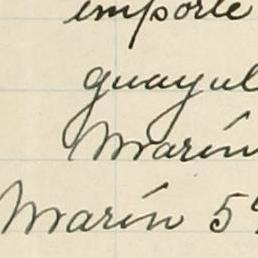 importe
guayul
Marín
Marín 59